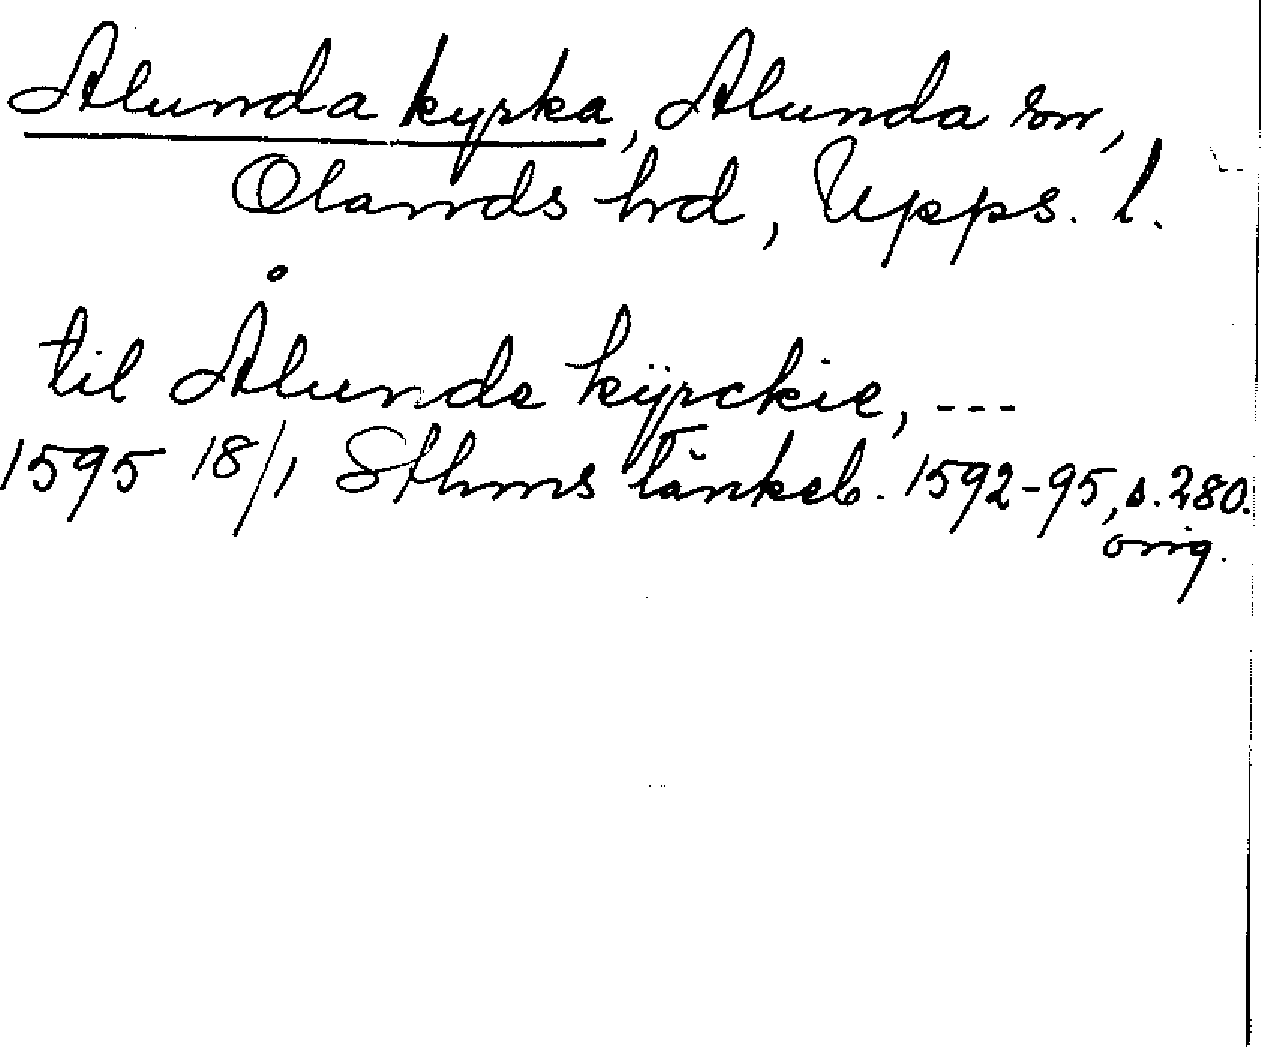 Alunda kyrka, Alunda sn,
Olands hd, Upps. l.
til Ålunde kÿrckie, ---
1595 18/1 Sthms tänkeb. 1592-95, s. 280.
orig.